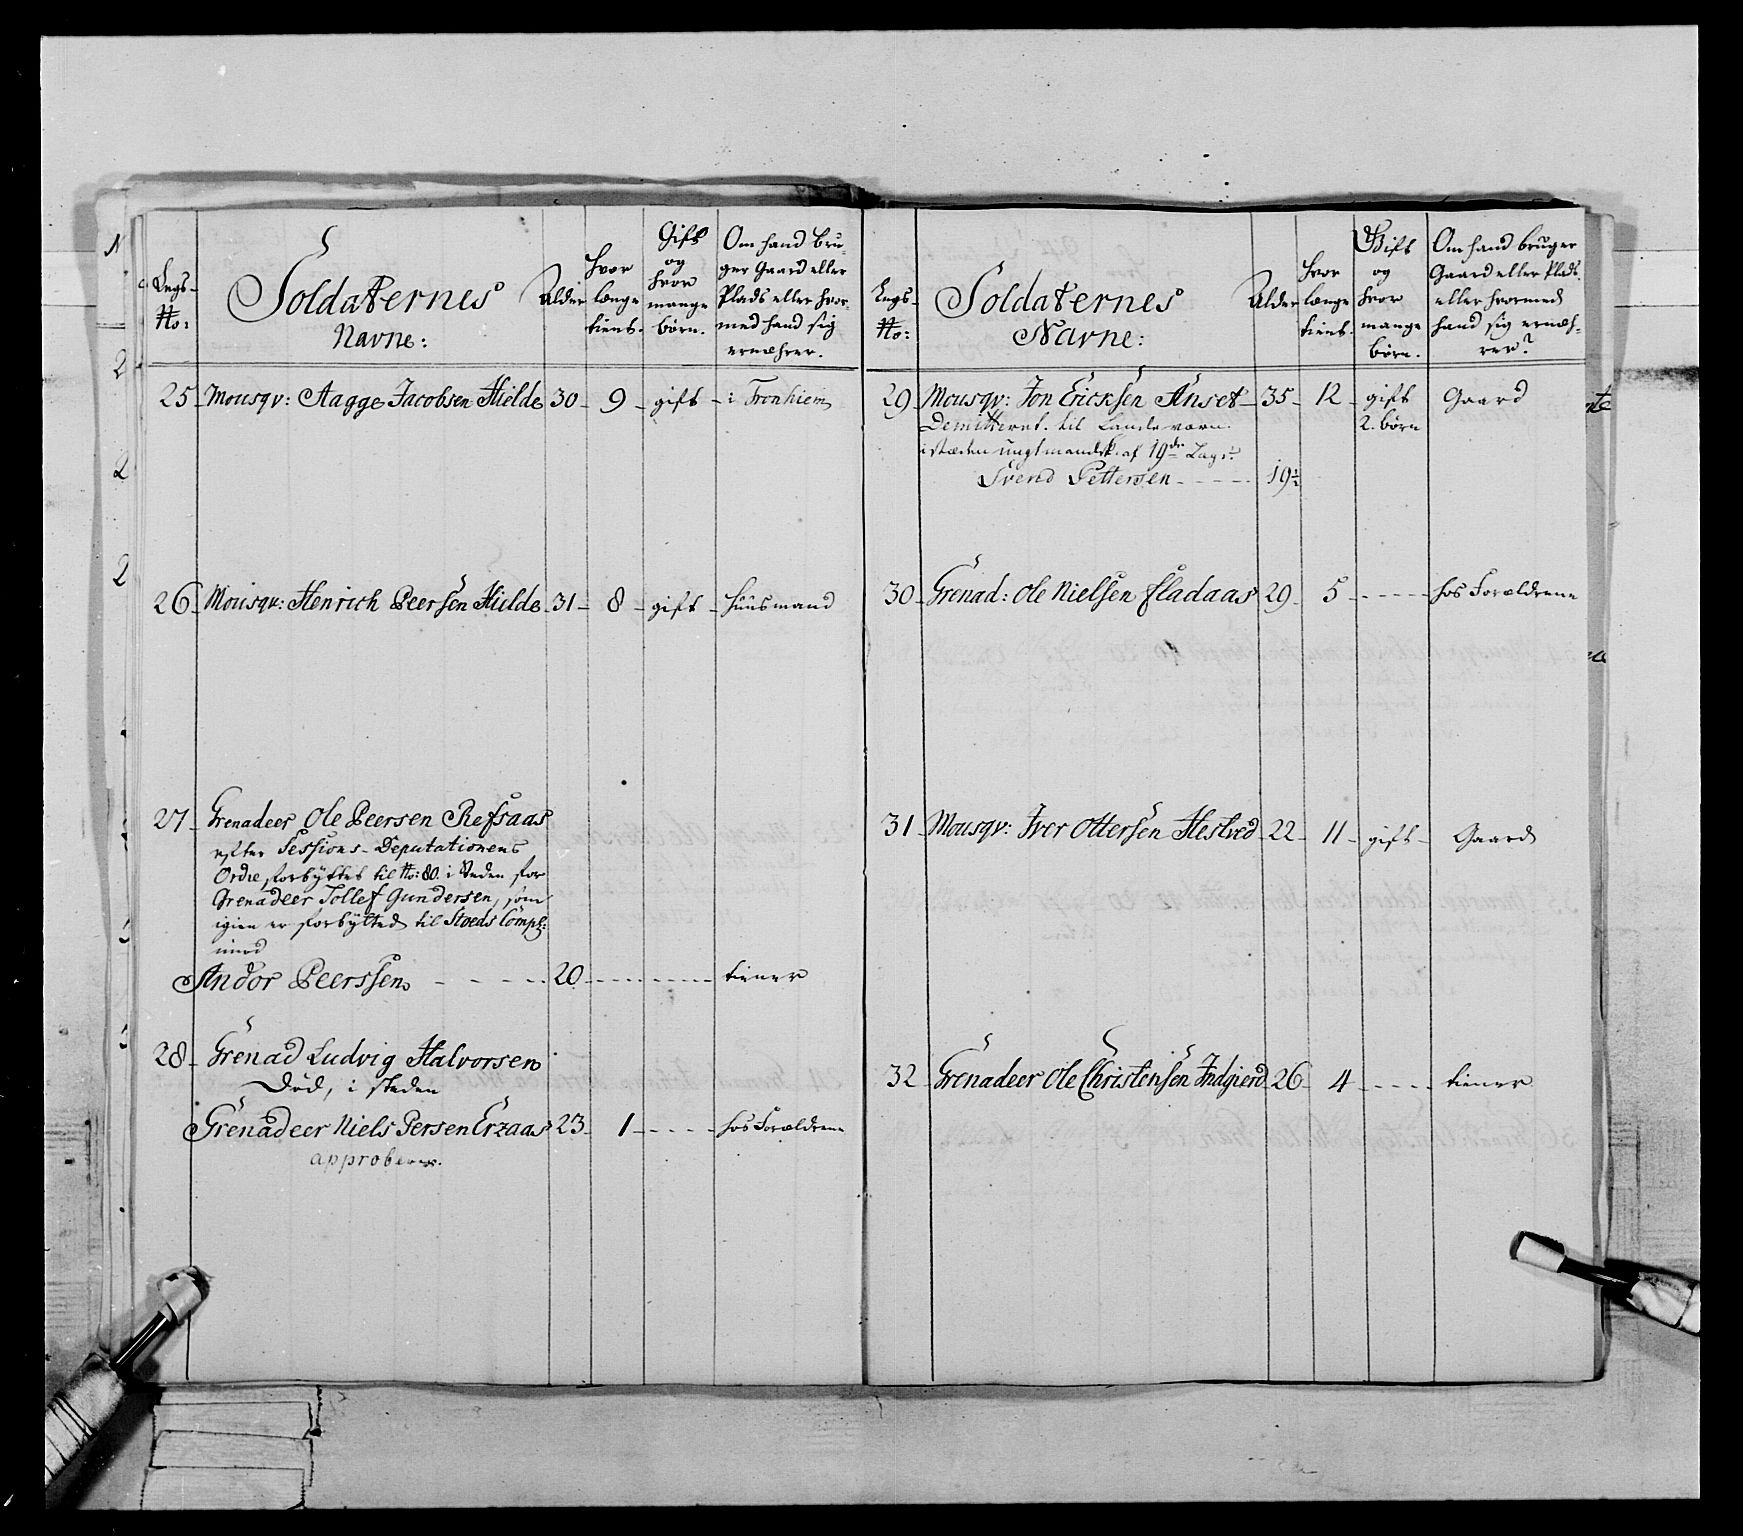 Legs- No:
Soldaternes Navne:
Alder
hvor længe tient.
Gift og hvor mange børn.
Om hand bruger Gaard eller Plads eller hvormed hand sig ernæhrer.
25 Mousqv: Aagge Jacobsen Hielde 30 9 gift i Tronhiem
26 Mousqv: Henrich Peersen Hielde 31 8 gift huusmand
27 Grenadeer Ole Peersen Refsaas
efter Sessions-Deputationens
Ordre forbyttet til No: 80. i Steden for
Grenadeer Tollef Gundersen, som
igien er forbytted til Stoeds Comp:
med
Andor Peerssen 20 tiener
28 Grenad Ludvig Halvorsen
Død, i steden
Grenadeer Niels Persen Erzaas 23 1 hos Forældrene
approberes.
Legs- No:
Soldaternes Navne:
Alder
hvor længe tient.
Gift og hvor mange børn.
Om hand bruger Gaard eller Plads. eller hvormed hand sig ernæhrer?
29 Mousqv: Jon Ericksen Anset 35 12 gift Gaard
Demitteret. til Landeværn. 2. børn
istæden ungt mandsk. af 19de Læg
Svend Pettersen 19½
30 Grenad: Ole Nielsen Fladaas 29 5 hos Forældrene
31 Mousqv: Iver Ottersen Hestved 22 11 gift Gaard
32 Grenadeer Ole Christensen Indgierd 26 4 tiener